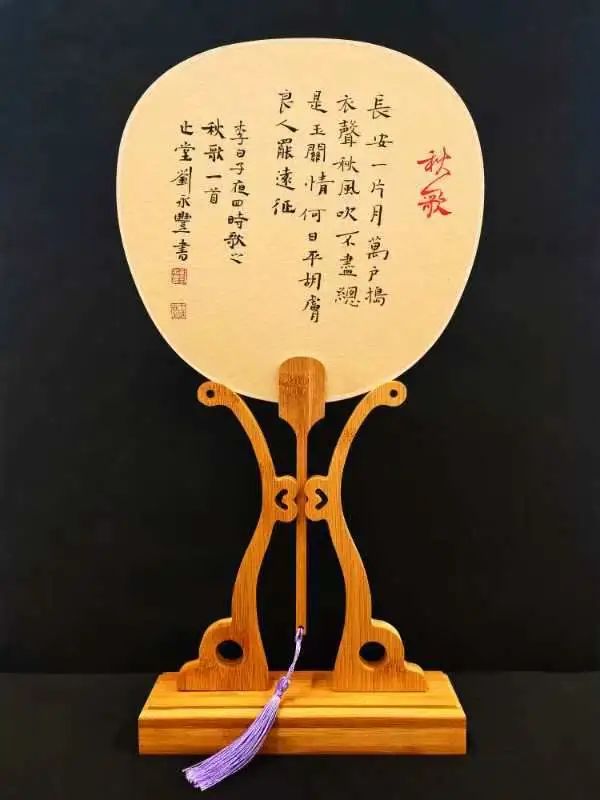 秋歌
長安一片月萬戶搗
衣聲秋風吹不盡總
是玉關情何日平胡虜
良人罷遠征
李白子夜四時歌之
秋歌一首
止堂劉永豐書